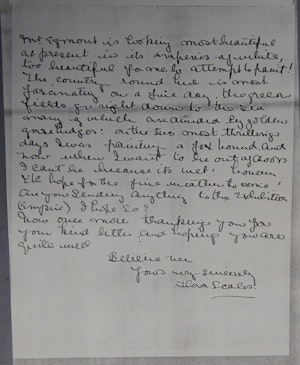 Mt Egmont is looking most beautiful
at present in its draperies of white,
too beautiful for me to attempt to paint!
The country round here is most
fascinating on a fine day, the green
fields go right down to the sea
many of which are divided by golden
gorse hedges! On the two most thrilling
days I was painting a fox hound and
now when I want to be out of doors
I can't be because its wet! However
I'll hope for the fine weather to come!
Are you sending anything to the Exhibition
(Empire) I hope so?
Now once more thanking you for
your kind letter and hoping you are
quite well
Believe me
Yours very sincerely
Flora Scales.